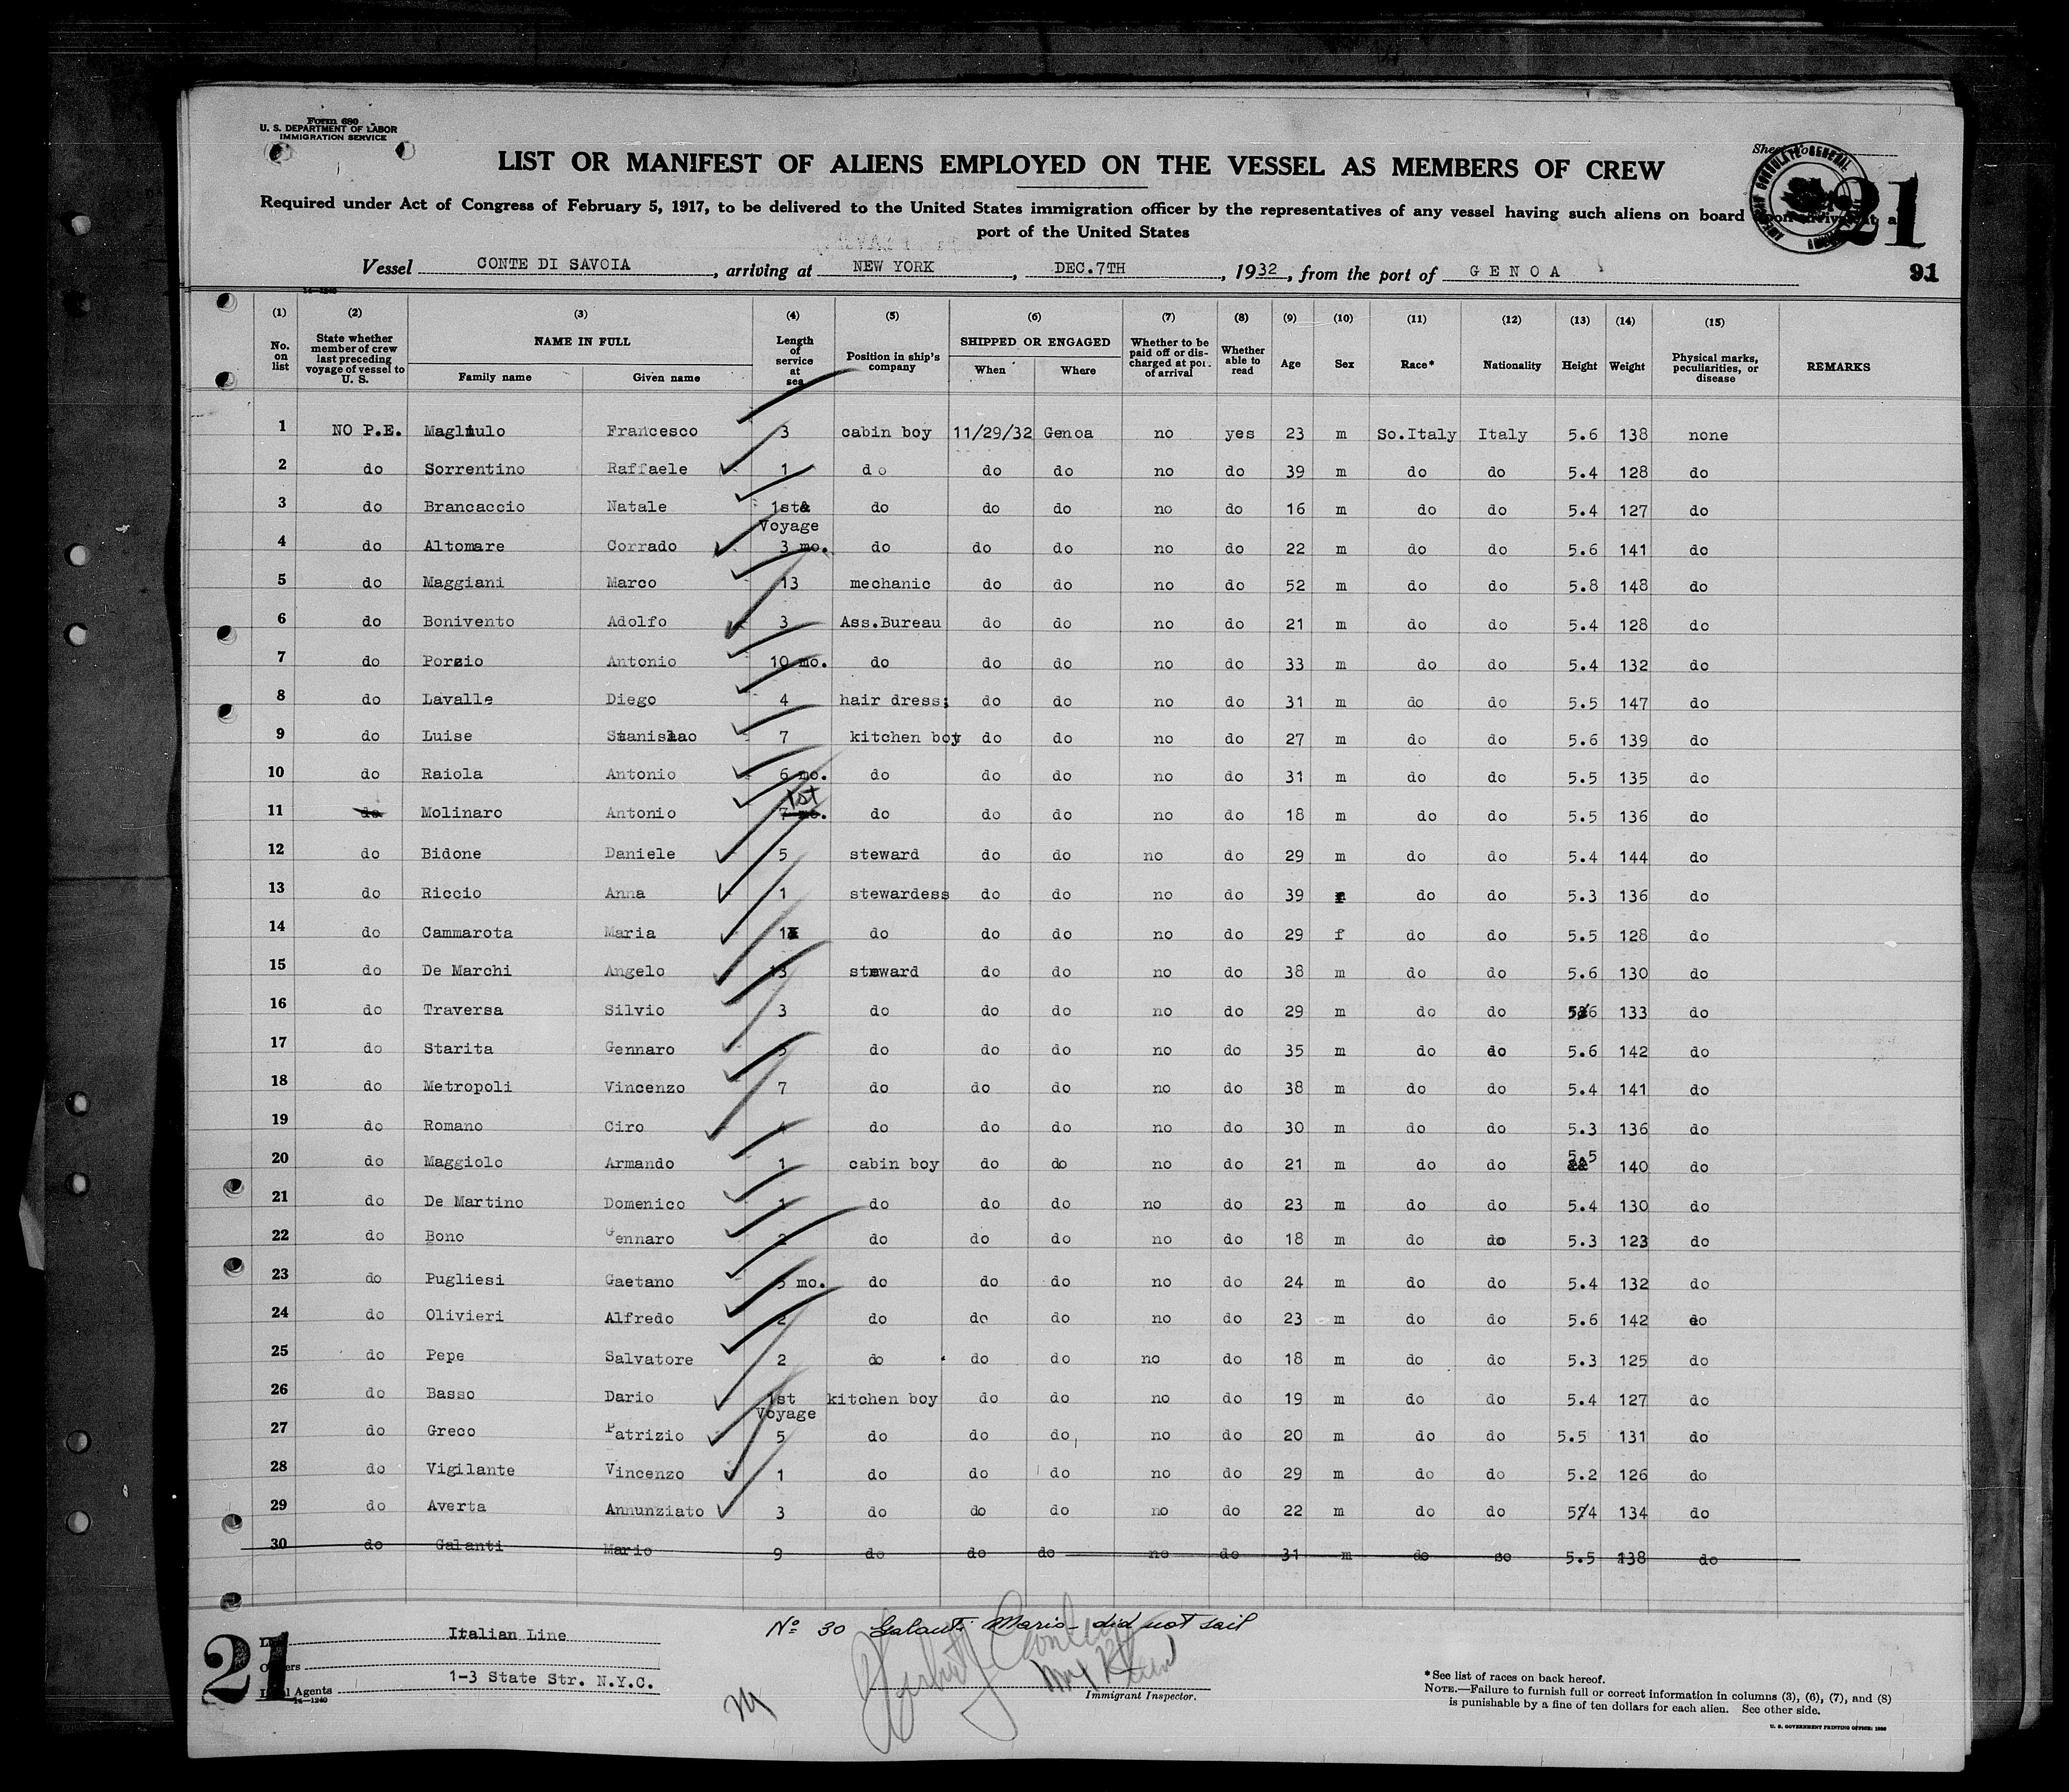 Form 680
U. S. DEPARTMENT OF LABOR
IMMIGRATION SERVICE
Sheet No.
LIST OR MANIFEST OF ALIENS EMPLOYED ON THE VESSEL AS MEMBERS OF CREW
21
Required under Act of Congress of February 5, 1917, to be delivered to the United States immigration officer by the representatives of any vessel having such aliens on board upon arrival at a
port of the United States
Vessel CONTE DI SAVOIA, arriving at NEW YORK, DEC.7TH, 1932, from the port of GENOA
91
14—1240
(1) (2) (3) (4) (5) (6) (7) (8) (9) (10) (11) (12) (13) (14) (15)
No. on list State whether member of crew last preceding voyage of vessel to U. S. NAME IN FULL Family name Given name Length of service at sea Position in ship's company SHIPPED OR ENGAGED When Where Whether to be paid off or discharged at port of arrival Whether able to read Age Sex Race* Nationality Height Weight Physical marks, peculiarities, or disease REMARKS
1 NO P.E. Magliulo Francesco 3 cabin boy 11/29/32 Genoa no yes 23 m So.Italy Italy 5.6 138 none
2 do Sorrentino Raffaele 1 do do do no do 39 m do do 5.4 128 do
3 do Brancaccio Natale 1st Voyage do do do no do 16 m do do 5.4 127 do
4 do Altomare Corrado 3 mo. do do do no do 22 m do do 5.6 141 do
5 do Maggiani Marco 13 mechanic do do no do 52 m do do 5.8 148 do
6 do Bonivento Adolfo 3 Ass.Bureau do do no do 21 m do do 5.4 128 do
7 do Porzio Antonio 10 mo. do do do no do 33 m do do 5.4 132 do
8 do Lavalle Diego 4 hair dress; do do no do 31 m do do 5.5 147 do
9 do Luise Stanislao 7 kitchen boy do do no do 27 m do do 5.6 139 do
10 do Raiola Antonio 6 mo. do do do no do 31 m do do 5.5 135 do
11 do Molinaro Antonio 7 mo. 1st do do do no do 18 m do do 5.5 136 do
12 do Bidone Daniele 5 steward do do no do 29 m do do 5.4 144 do
13 do Riccio Anna 1 stewardess do do no do 39 f do do 5.3 136 do
14 do Cammarota Maria 1 do do do no do 29 f do do 5.5 128 do
15 do De Marchi Angelo 13 steward do do no do 38 m do do 5.6 130 do
16 do Traversa Silvio 3 do do do no do 29 m do do 5.6 133 do
17 do Starita Gennaro do do do no do 35 m do do 5.6 142 do
18 do Metropoli Vincenzo 7 do do do no do 38 m do do 5.4 141 do
19 do Romano Ciro 4 do do do no do 30 m do do 5.3 136 do
20 do Maggiolo Armando 1 cabin boy do do no do 21 m do do 5.5 140 do
21 do De Martino Domenico 1 do do do no do 23 m do do 5.4 130 do
22 do Bono Gennaro 2 do do do no do 18 m do do 5.3 123 do
23 do Pugliesi Gaetano mo. do do do no do 24 m do do 5.4 132 do
24 do Olivieri Alfredo 2 do do do no do 23 m do do 5.6 142 do
25 do Pepe Salvatore 2 do do do no do 18 m do do 5.3 125 do
26 do Basso Dario 1st Voyage kitchen boy do do no do 19 m do do 5.4 127 do
27 do Greco Patrizio 5 do do do no do 20 m do do 5.5 131 do
28 do Vigilante Vincenzo 1 do do do no do 29 m do do 5.2 126 do
29 do Averta Annunziato 3 do do do no do 22 m do do 5/4 134 do
30 do Galanti Mario 9 do do do no do 31 m do so 5.5 138 do
No 30 Galanti Mario - did not sail
21
Line Italian Line
Owners
Local Agents 1-3 State Str. N.Y.C.
14—1240
Immigrant Inspector.
*See list of races on back hereof.
NOTE.—Failure to furnish full or correct information in columns (3), (6), (7), and (8)
is punishable by a fine of ten dollars for each alien. See other side.
U. S. GOVERNMENT PRINTING OFFICE: 1930